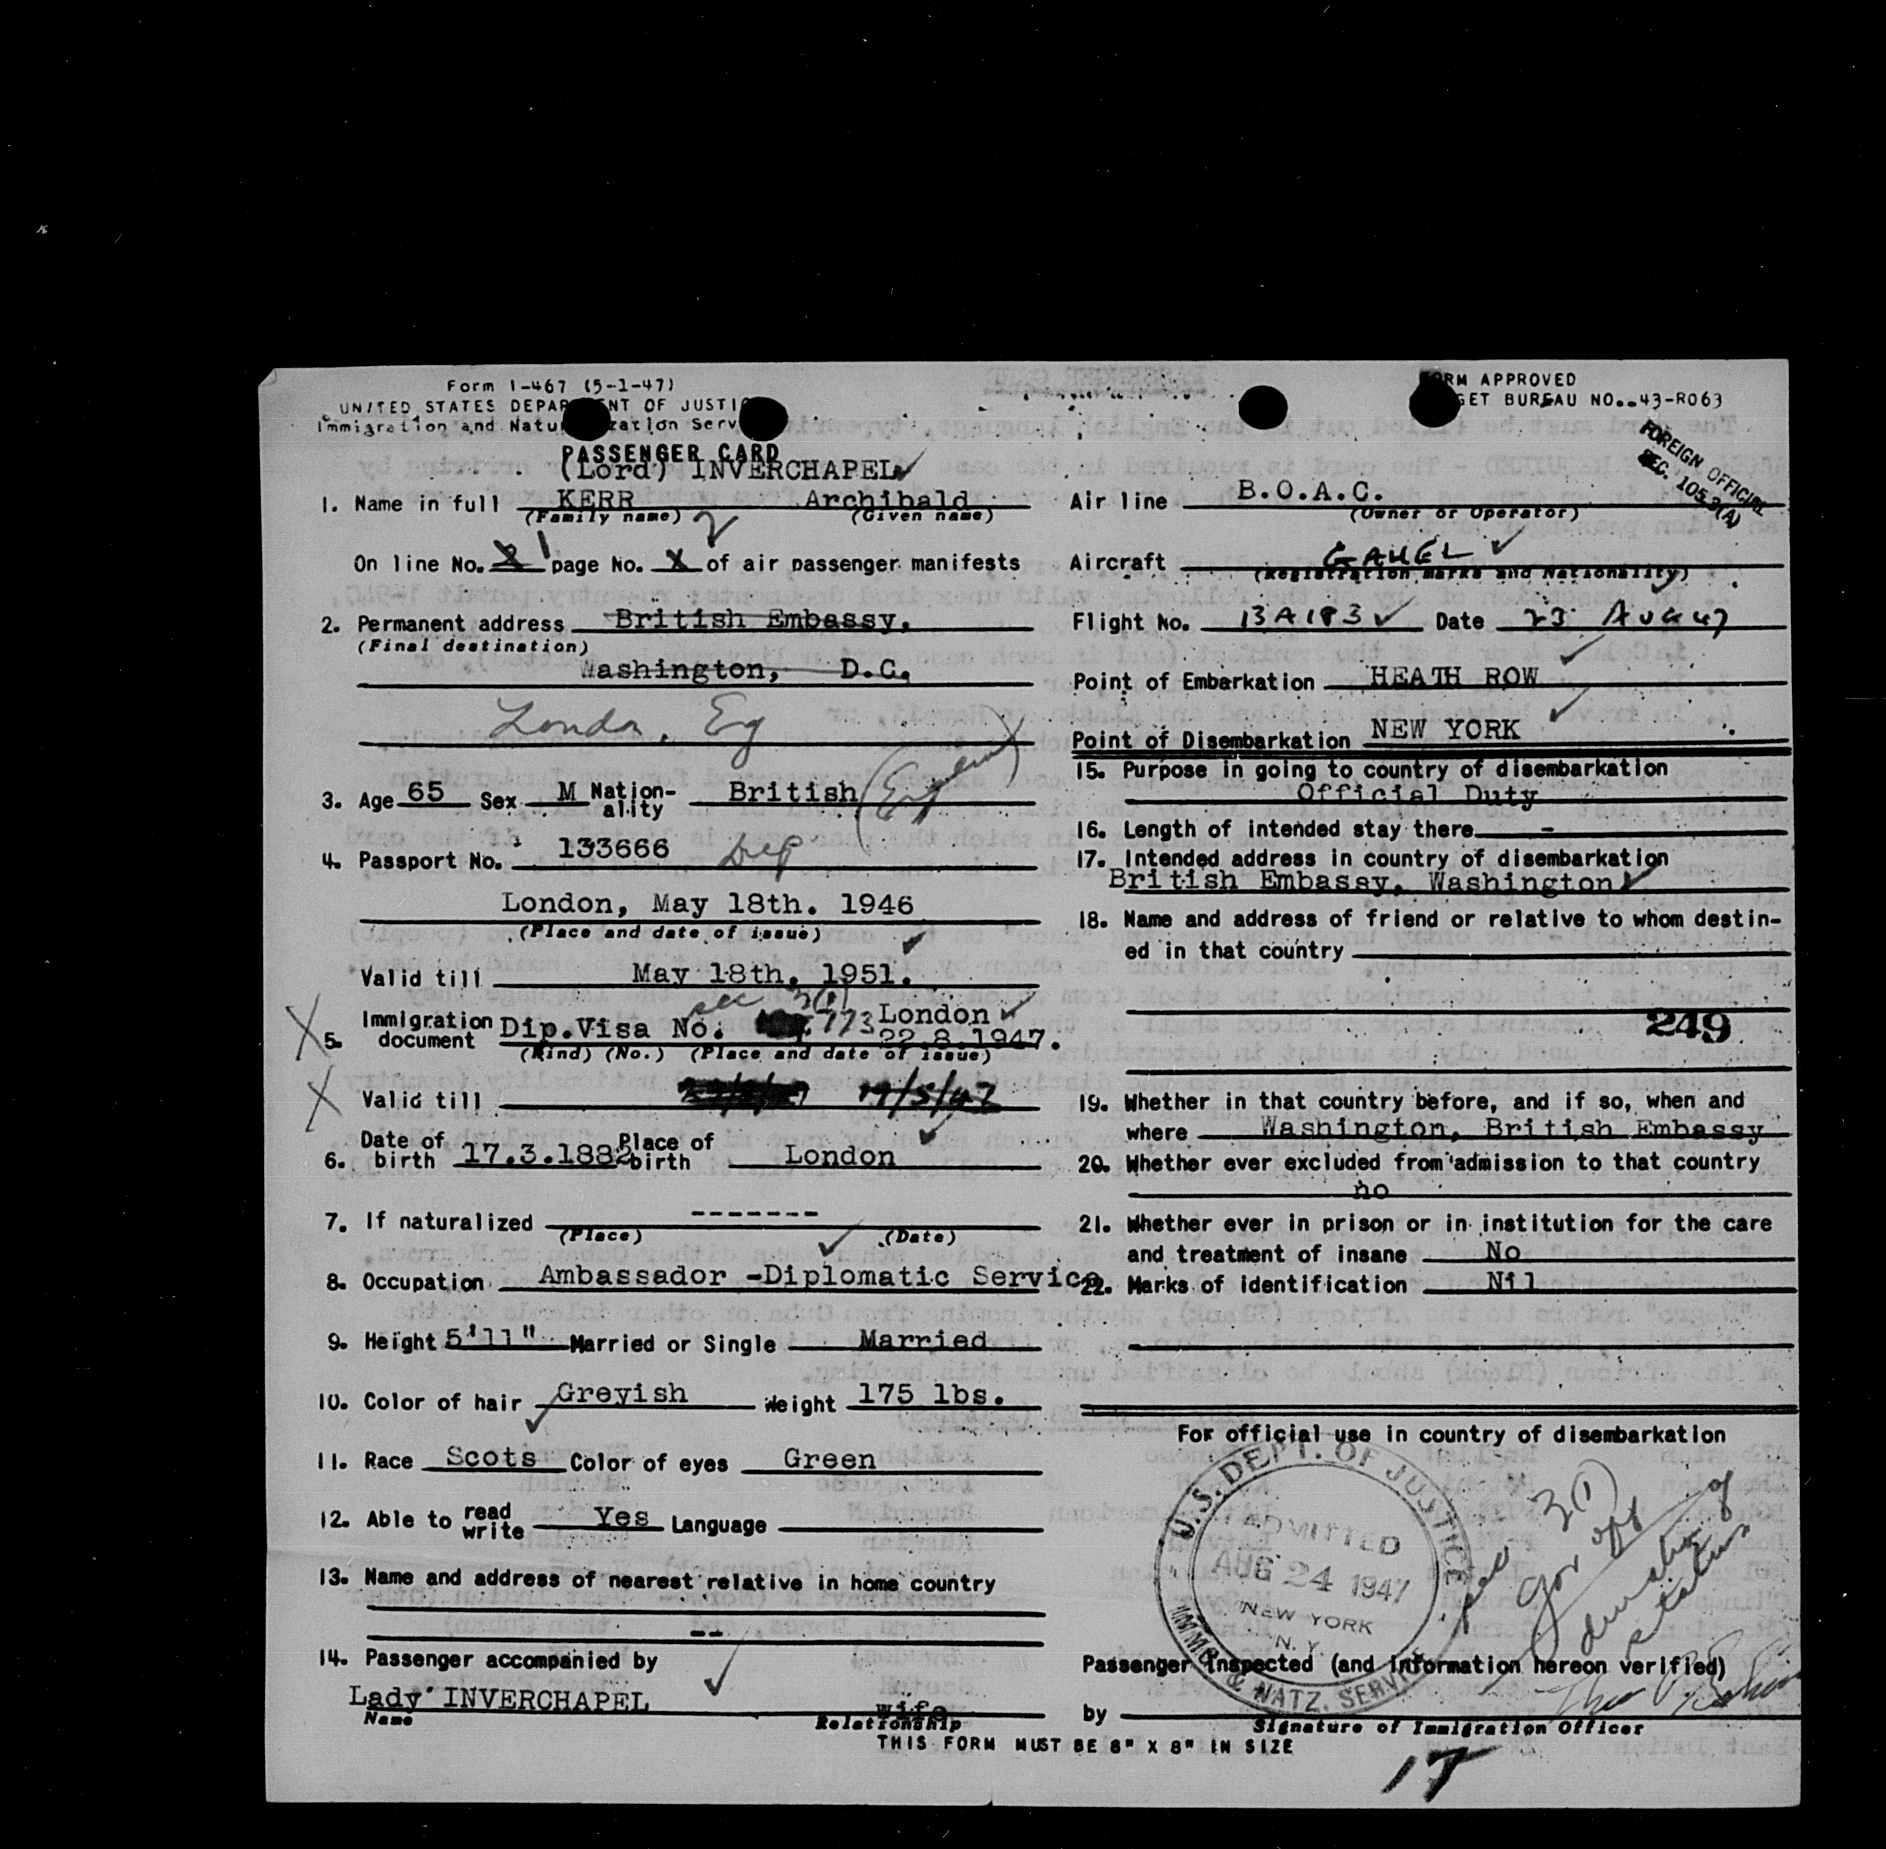 Form I-467 (5-1-47)
UNITED STATES DEPARTMENT OF JUSTICE
Immigration and Naturalization Serv
PASSENGER CARD
(Lord) INVERCHAPEL
1. Name in full KERR Archibald
(Family name) (Given name)
On line No. 1 page No. of air passenger manifests
2. Permanent address British Embassy,
(Final destination)
Washington, D.C.
London, Eng
3. Age 65 Sex M Nation-ality British
4. Passport No. 133666 Dip
London, May 18th. 1946
(Place and date of issue)
Valid till May 18th. 1951.
sec 3(1)
5. Immigration document Dip.Visa No. 773 London
22.8.1947.
(Kind) (No.) (Place and date of issue)
Valid till
6. Date of birth 17.3.1882 Place of birth London
7. If naturalized -------
(Place) (Date)
8. Occupation Ambassador -Diplomatic Service
9. Height 5'11" Married or Single Married
10. Color of hair Greyish Weight 175 lbs.
11. Race Scots Color of eyes Green
12. Able to read write Yes Language
13. Name and address of nearest relative in home country
--
14. Passenger accompanied by
Lady INVERCHAPEL wife
Name Relationship
THIS FORM MUST BE 8" X 8" IN SIZE
FORM APPROVED
GET BUREAU NO. 43-R063
FOREIGN OFFICIAL
SEC. 105.3(A)
Air line B.O.A.C.
(Owner or Operator)
Aircraft GAHEL
(Registration marks and Nationality)
Flight No. BA183 Date 23 AUG 47
Point of Embarkation HEATH ROW
Point of Disembarkation NEW YORK
15. Purpose in going to country of disembarkation
Official Duty
16. Length of intended stay there -
17. Intended address in country of disembarkation
British Embassy, Washington
18. Name and address of friend or relative to whom destin-
ed in that country
249
19. Whether in that country before, and if so, when and
where Washington, British Embassy
20. Whether ever excluded from admission to that country
no
21. Whether ever in prison or in institution for the care
and treatment of insane No
22. Marks of identification Nil
For official use in country of disembarkation
U.S. DEPT. OF JUSTICE
ADMITTED
AUG 24 1947
NEW YORK
N.Y.
IMMG & NATZ. SERVICE
sec 3(1)
gov off
duration of
status
Passenger Inspected (and information hereon verified)
by
Signature of Immigration Officer
17